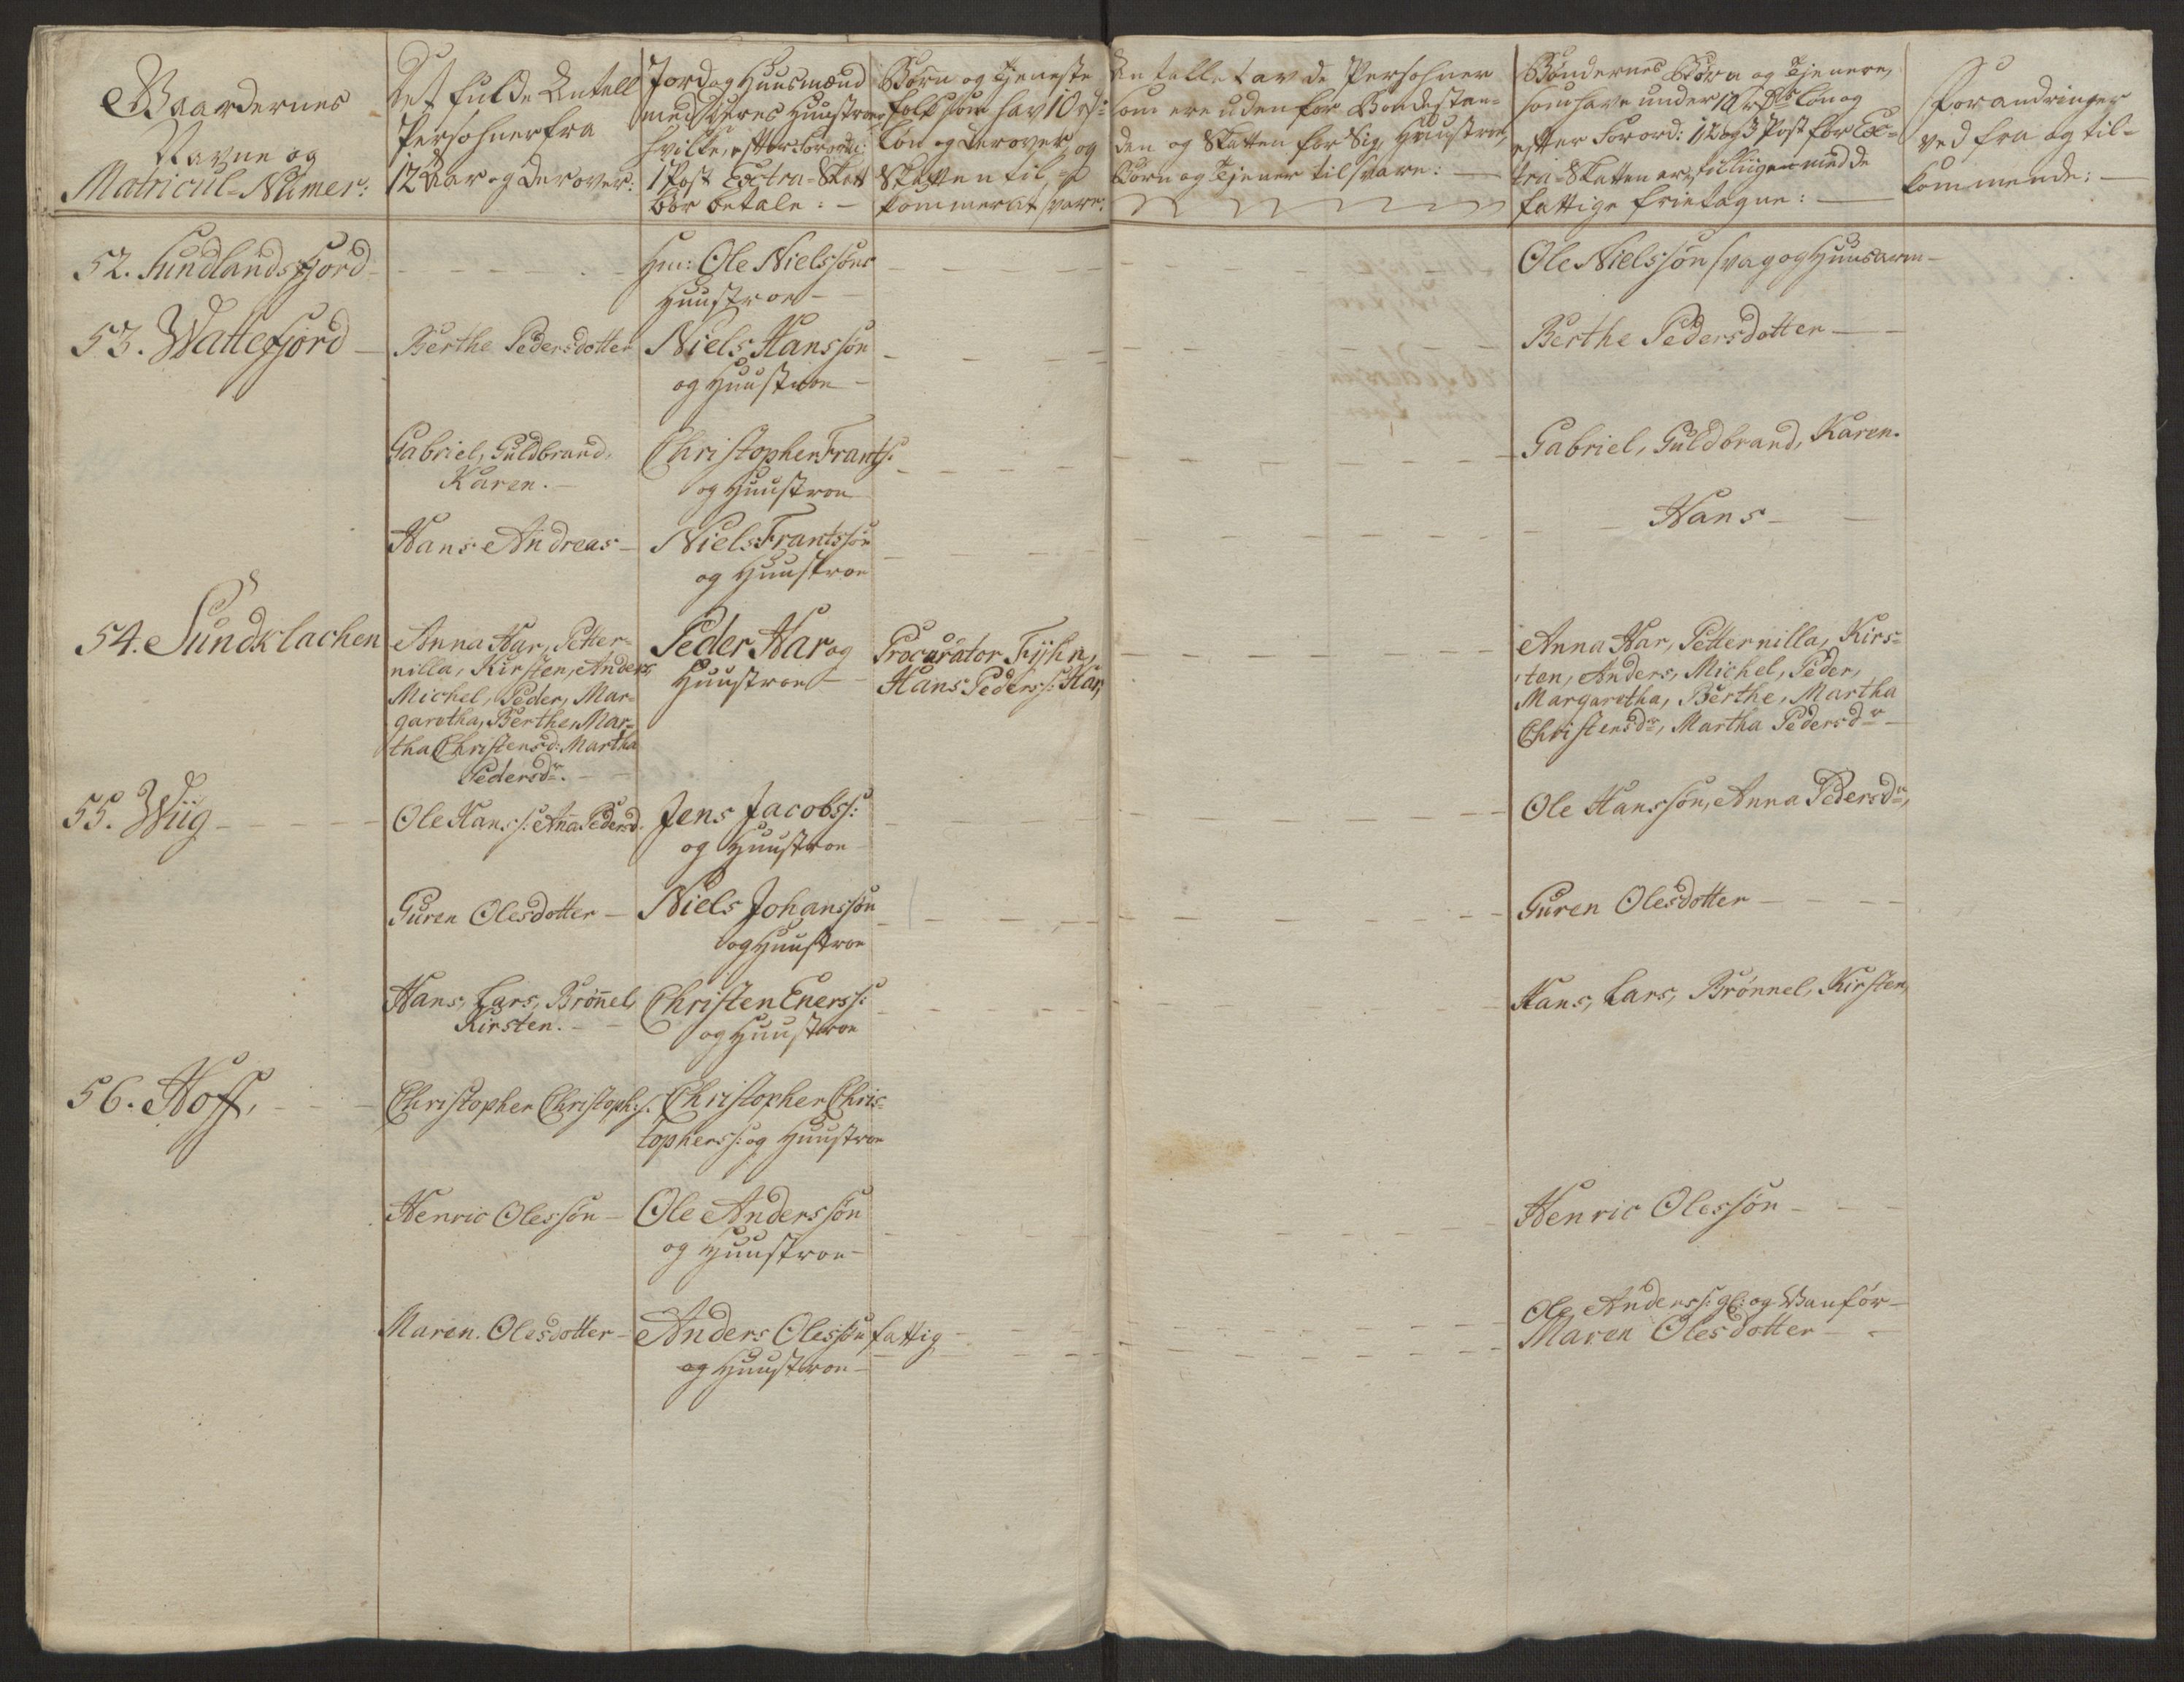 Gaardernes
Navne og
Matricul-Numer:
Det fulde Antall
Persohner fra
12 Aar og derover:
Jord og Huusmænd
med deres Huustroer
hvilke, efter Forord:
1 Post Extra-Skatt
bør betale: —
Børn og Tjeneste
folk som hav 10 rd:
Løn og derover, og
Skatten til
kommer at svare:
Antallet av de Persohner
som ere uden for Bondestan-
den og Skatten for Sig, Huustroe,
Børn og Tjener tilsvare: —
Bøndernes Børn og Tjenere,
som have under 10 rd Løn og
efter Forord: 1, 2 og 3 Post for Ex-
tra-Skatten er, tilligemed de
fattige frietagne: —
Forandringer
ved fra og til-
kommende: —
52. Sundlandsfjord —
Huu: Ole Nielssøns
Huustroe —
Ole Nielssøn svag og Huusarm —
53. Wattefjord —
Berthe Pedersdotter
Niels Hanssøn
og Huustroe —
Berthe Pedersdotter —
Gabriel, Guldbrand,
Karen. —
Christopher Frants:
og Huustroe
Gabriel, Guldbrand, Karen.
Hans Andreas —
Niels Frantssøn
og Huustroe
Hans —
54. Sundklachen
Anna Har, Petter-
nilla, Kirsten, Anders
Michel, Peder, Mar-
garetha, Berthe, Mar-
tha Christensd: Martha
Pedersdr. —
Peder Har og
Huustroe —
Procurator Fyhn,
Hans Peders: Har,
Anna Har, Petternilla, Kirs-
ten, Anders, Michel, Peder,
Margaretha, Berthe, Martha
Christensdr, Martha Pedersdr —
55. Wiig —
Ole Hans: Aña Pedersd.
Jens Jacobs:
og Huustroe
Ole Hanssøn, Anna Pedersdr,
Guren Olesdotter —
Niels Johanssøn
og Huustroe
Guren Olesdotter —
Hans, Lars, Brøñel,
Kirsten. —
Christen Eners:
og Huustroe
Hans, Lars, Brønnel, Kirsten,
56. Hoff, —
Christopher Christoph: s.
Christopher Chris-
tophers: og Huustroe
Henric Olessøn —
Ole Anderssøn
og Huustroe —
Henric Olessøn —
Maren Olesdotter —
Anders Olessøn fattig —
og Huustroe —
Ole Anders: gl: og Vanfør —
Maren Olesdotter —